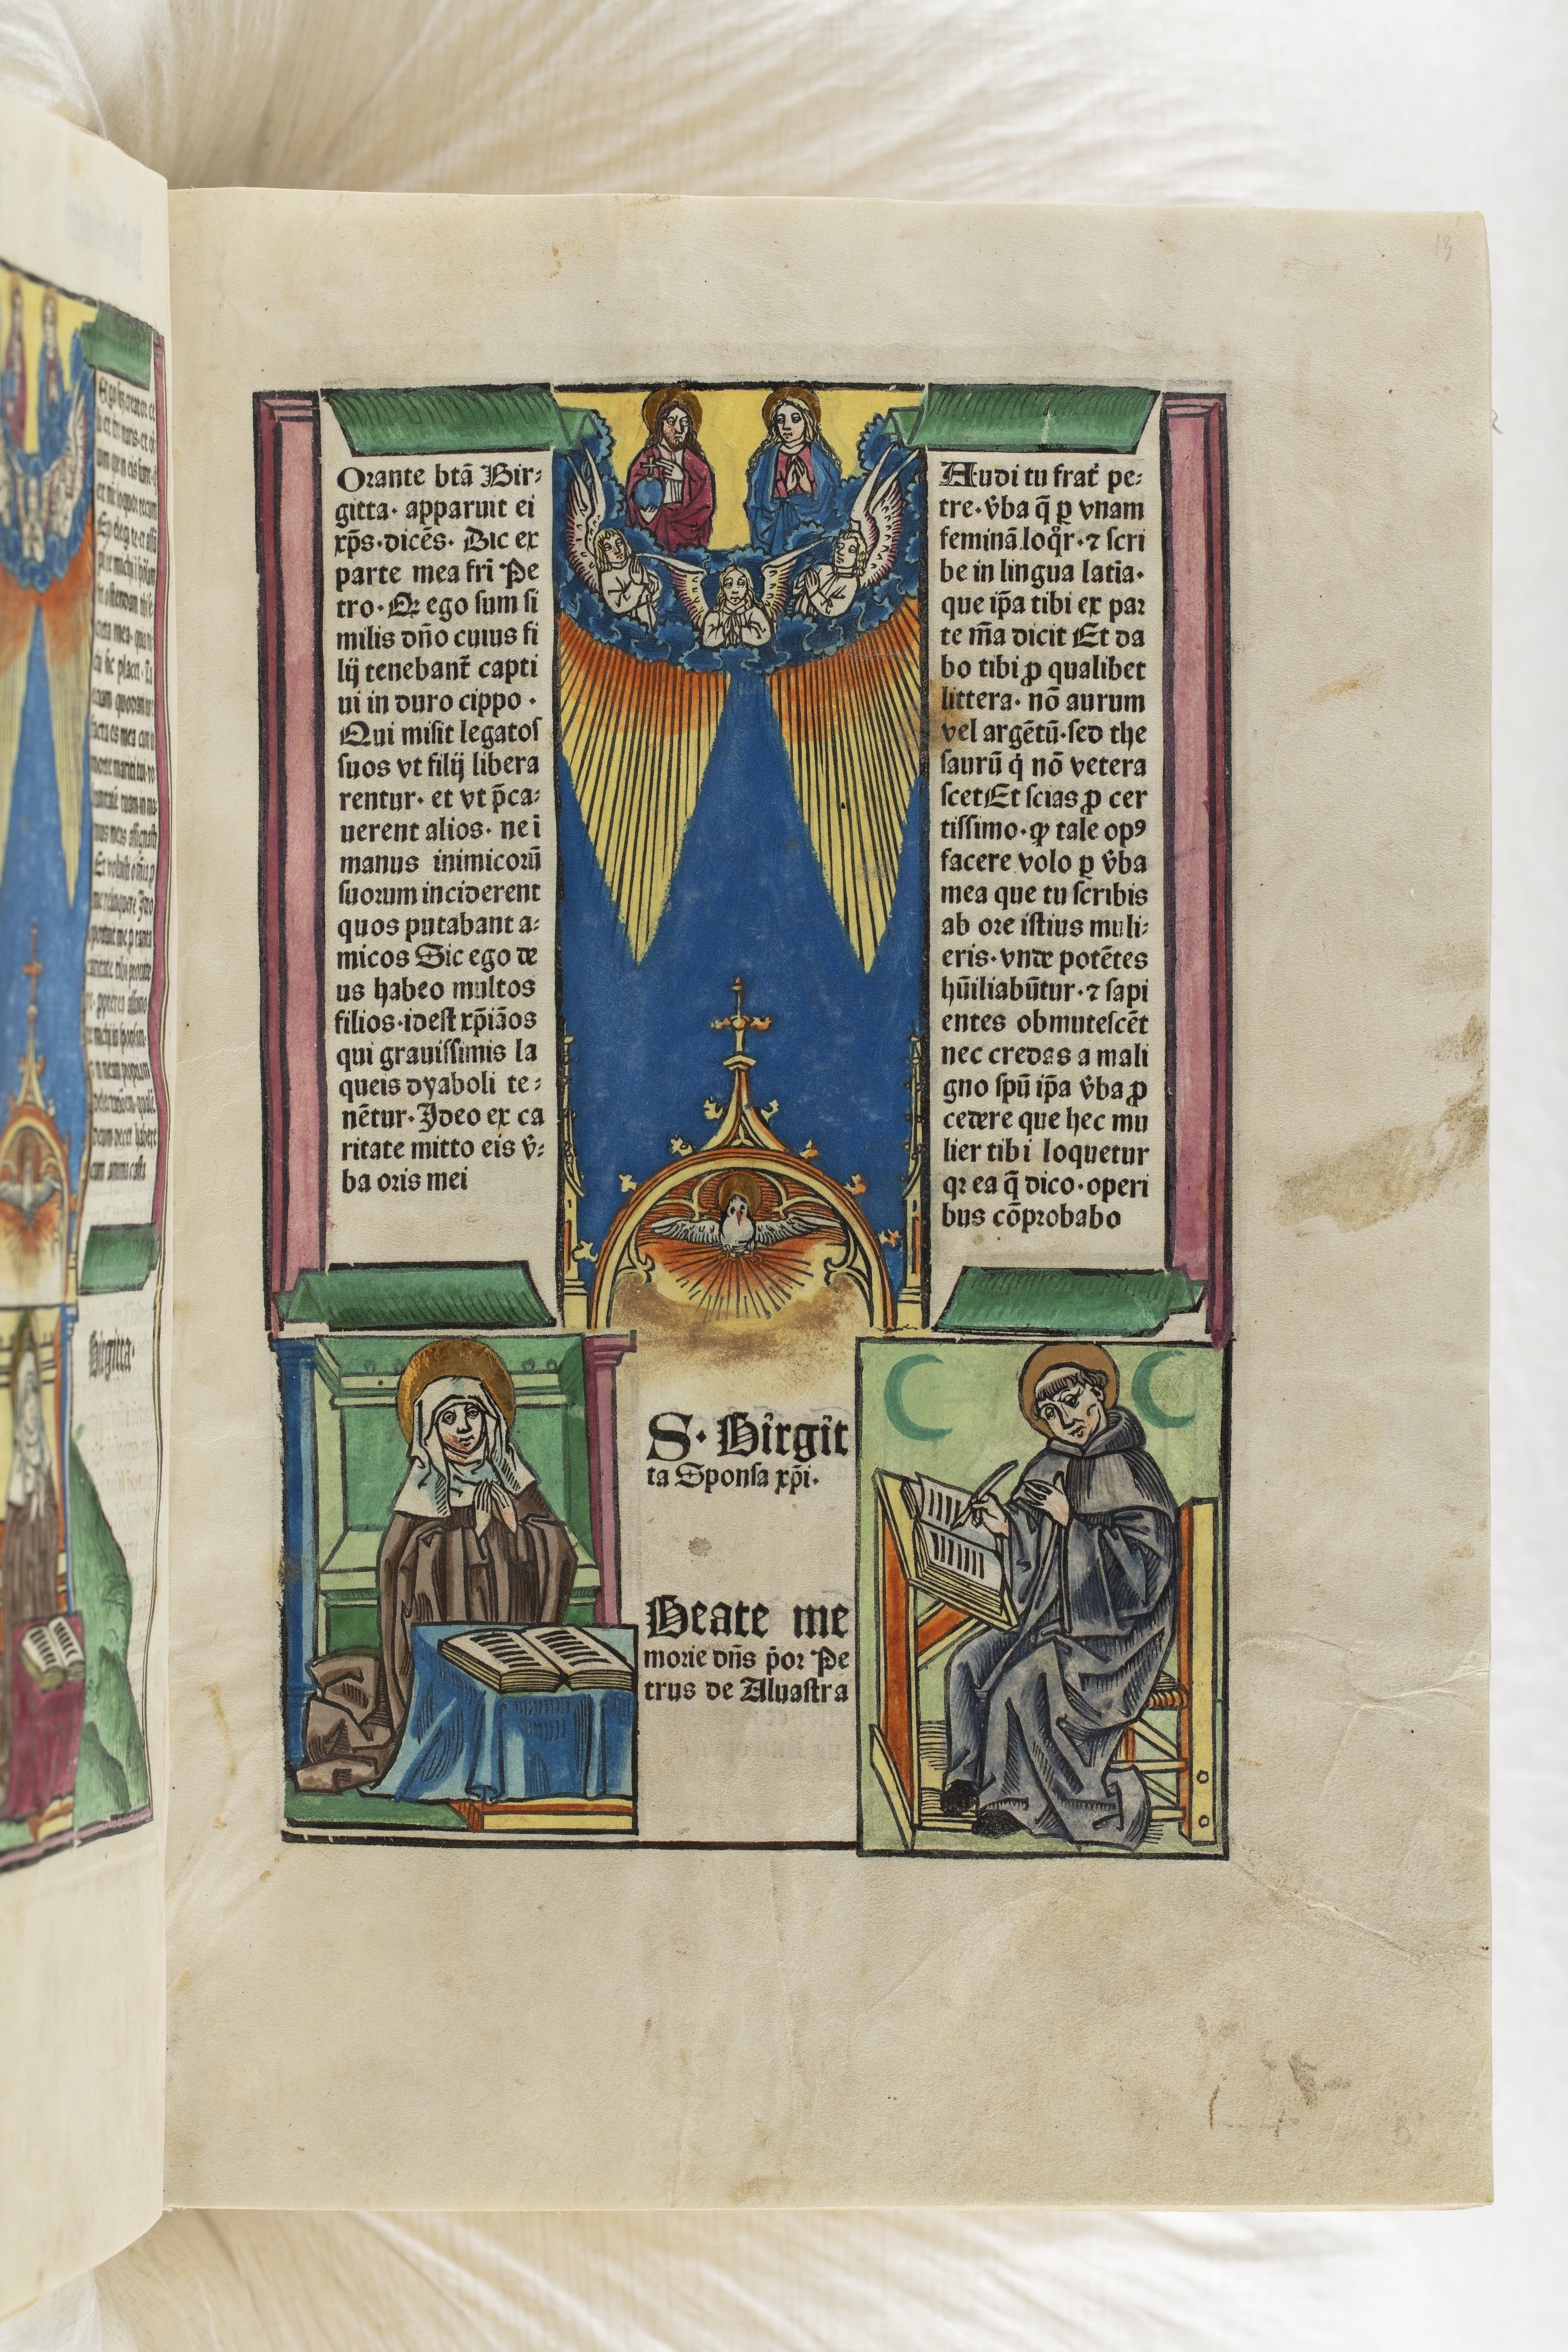 Orante btã Bir⸗
gitta· apparuit ei
xp̃s·dicẽs· Dic ex
parte mea fri Pe
tro·Qꝛ ego sum si
milis dño cuius fi
lij tenebant̃ capti
ui in duro cippo ·
Qui misit legatos
suos vt filij libera
rentur· et vt p̃ca⸗
uerent alios· ne ĩ
manus inimicoꝛũ
suorum inciderent
quos putabant a⸗
micos Sic ego de
us habeo multos
filios·idest xp̃iãos
qui grauissimis la
queis dyaboli te⸗
nẽtur·Ideo ex ca
ritate mitto eis v̾⸗
ba oꝛis mei
Audi tu frat̃ pe⸗
tre·v̾ba q̃ ꝑ vnam
feminã loq̊r·⁊ scri
be in lingua latia·
que ip̃a tibi ex paꝛ
te m̃a dicit Et da
bo tibi ꝓ qualibet
littera· nõ aurum
vel argẽtũ·sed the
saurũ q̇ nõ vetera
scet Et scias ꝓ cer
tissimo·ꝙ tale opꝰ
facere volo ꝑ v̾ba
mea que tu scribis
ab oꝛe istius muli⸗
eris·vnde potẽtes
hũiliabũtur·⁊ sapi
entes obmutescẽt
nec credas a mali
gno spũ ip̃a v̾ba ꝓ
cedere que hec mu
lier tibi loquetur
qꝛ ea q̃ dico·operi
bus cõpꝛobabo
S· Birgit
ta Sponsa xp̃i·
Beate me
moꝛie dñs p̃oꝛ Pe
trus de Aluastra
Birgitta·
13